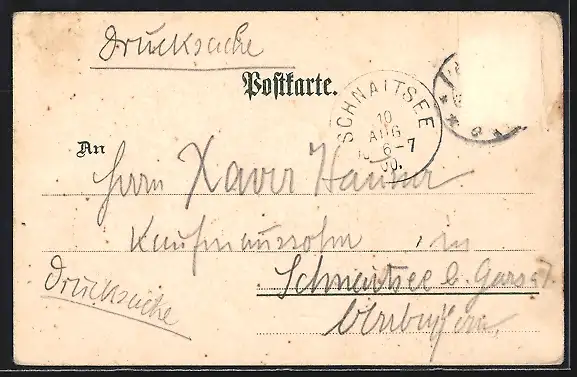 Drucksache
Postkarte.
SCHNAITSEE
10
AUG
6-7
00.
An
Herrn Xaver
Kaufmannssohn in
Schnaitsee b. Gars a/
Drucksache
Oberbayern.